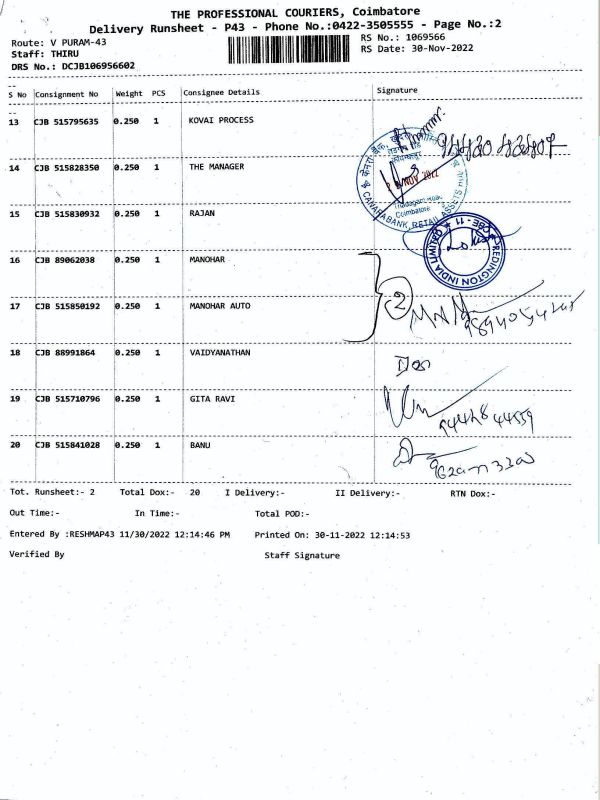 THE PROFESSIONAL COURIERS, Coimbatore
Delivery Runsheet - P43 - Phone No.:0422-3505555 - Page No.:2
Route: V PURAM-43
RS No.: 1069566
Staff: THIRU
RS Date: 30-Nov-2022
DRS No.: DCJB106956602
S No Consignment No Weight PCS Consignee Details Signature
13 CJB 515795635 0.250 1 KOVAI PROCESS
14 CJB 515828350 0.250 1 THE MANAGER
NOV 2022
Coimbatore
CANARA BANK, RETAIL ASSETS
15 CJB 515830932 0.250 1 RAJAN
REDINGTON INDIA LIMITED
CBE - 11
16 CJB 89062038 0.250 1 MANOHAR
2
17 CJB 515850192 0.250 1 MANOHAR AUTO
18 CJB 88991864 0.250 1 VAIDYANATHAN
19 CJB 515710796 0.250 1 GITA RAVI
20 CJB 515841028 0.250 1 BANU
Tot. Runsheet:- 2 Total Dox:- 20 I Delivery:- II Delivery:- RTN Dox:-
Out Time:- In Time:- Total POD:-
Entered By :RESHMAP43 11/30/2022 12:14:46 PM Printed On: 30-11-2022 12:14:53
Verified By Staff Signature